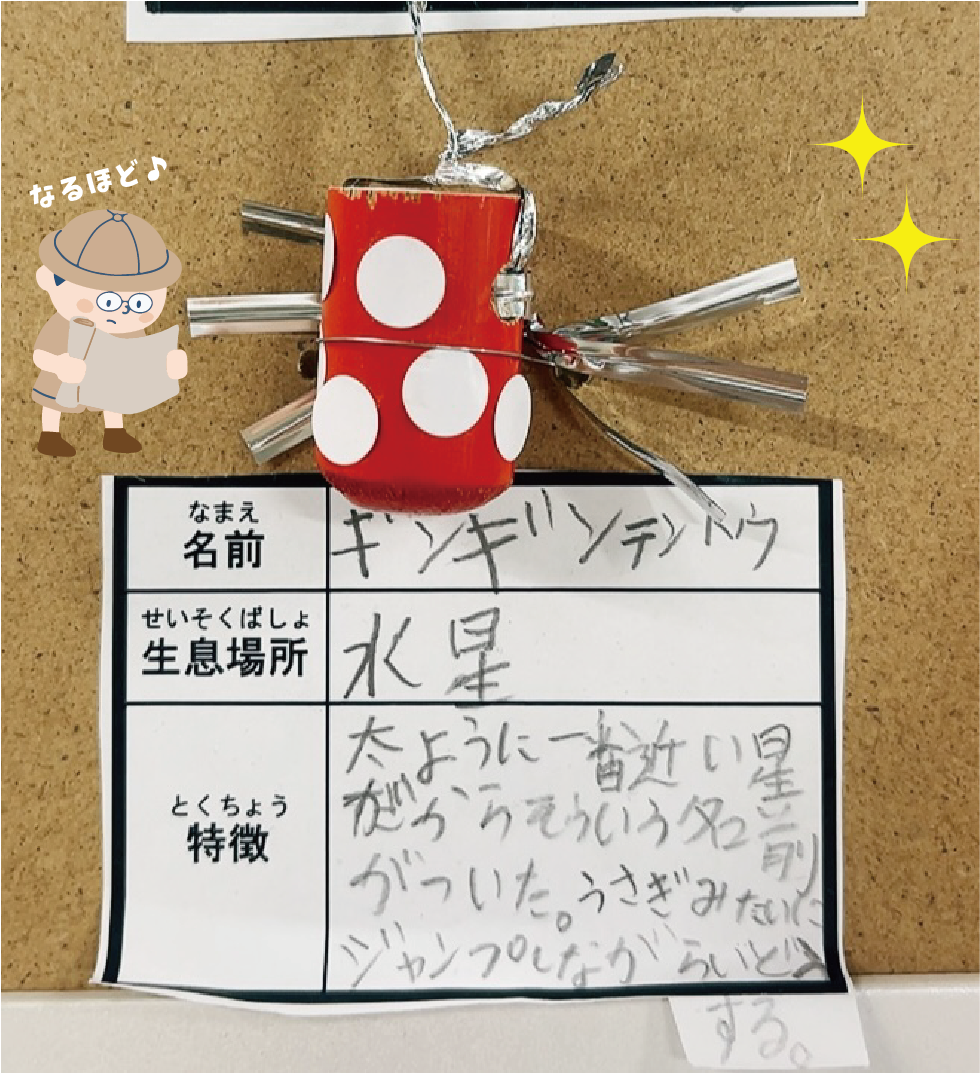 なるほど♪
なまえ
名前
ギンギンテントウ
せいそくばしょ
生息場所
水星
とくちょう
特徴
太ように一番近い星
だからそういう名前
がついた。うさぎみたいに
ジャンプしながらいどう
する。